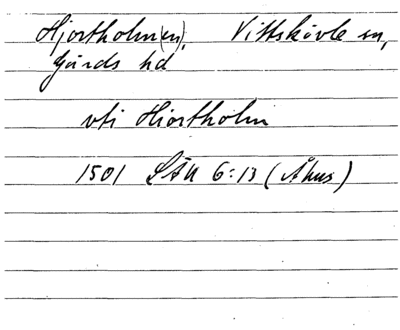 Hjortholm(en), Vittskövle sn,
Gärds hd
vti Hiortholm
1501 SÄU 6:13 (Åhus)